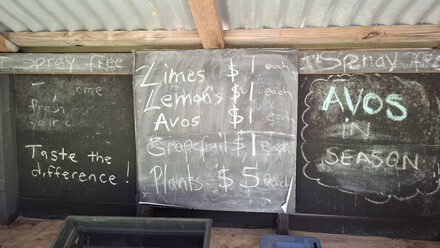 Spray free
ome
fresh
Taste the
difference!
Limes $1 each
Lemons $1 each
Avos $1
Grapefruit $1 each
Plants $5 each
Spray free
AVOS
iN
SEASON